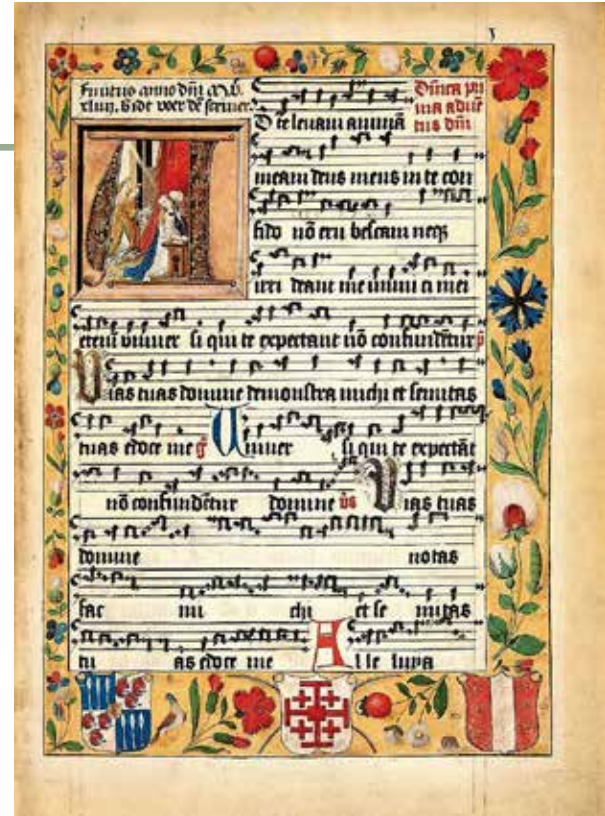 Finitus anno dñi M.V.
xliiij. Bidt voer dē scriuer.
Dñica pri
ma aduē
tus dñi
D te leuaui animā
meam deus meus in te con
fido nō eru bescam neqȝ
irri deant me inimi ci mei
etenī vniuer si qui te expectant nō confundētur
Vias tuas domine demonstra michi et semitas
tuas edoce me Uniuer si qui te expectāt
nō confundētur domine Vias tuas
domine notas
fac mi chi et se mitas
tu as edoce me Alle luya